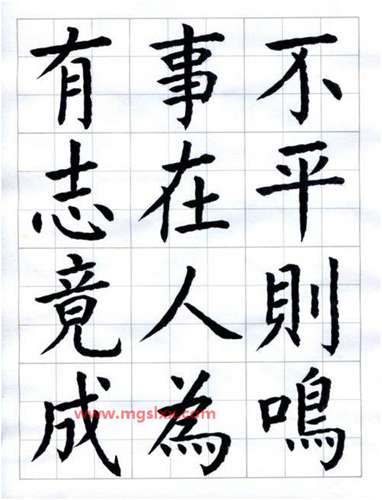 不平則鳴
事在人為
有志竟成
www.mgslxw.com